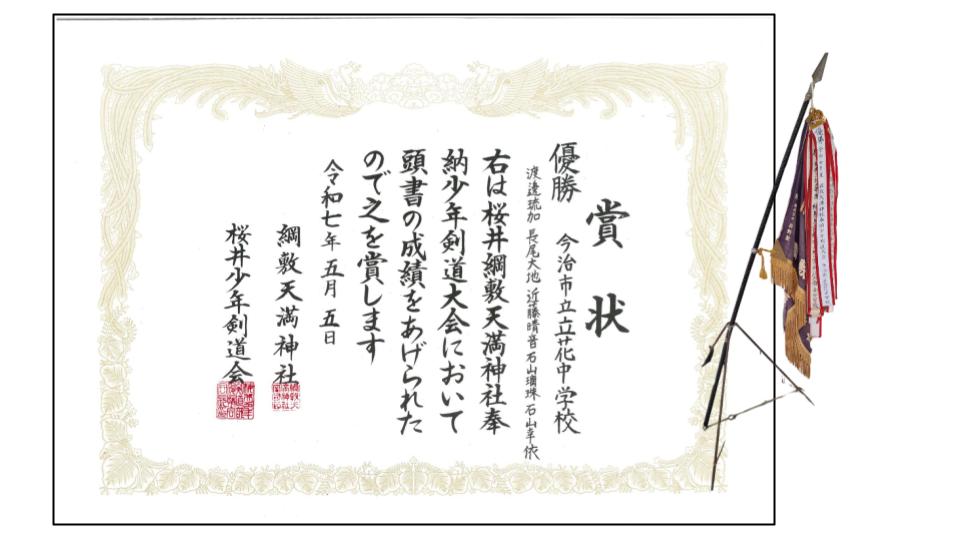 賞状
優勝 今治市立立花中学校
渡邉琉加 長尾大地 近藤晴音 石山璃珠 石山幸依
右は桜井綱敷天満神社奉
納少年剣道大会において
頭書の成績をあげられた
ので之を賞します
令和七年五月五日
綱敷天満神社
桜井少年剣道会